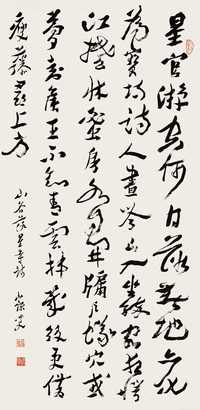 星官游空何日落著地亦化
為寶坊詩人晝吟山入座醉客夜愕
江撼床蜜房各自開牖戶蟻穴或
夢封侯王不知青雲梯幾級更借
瘦藤尋上方
山谷落星寺詩